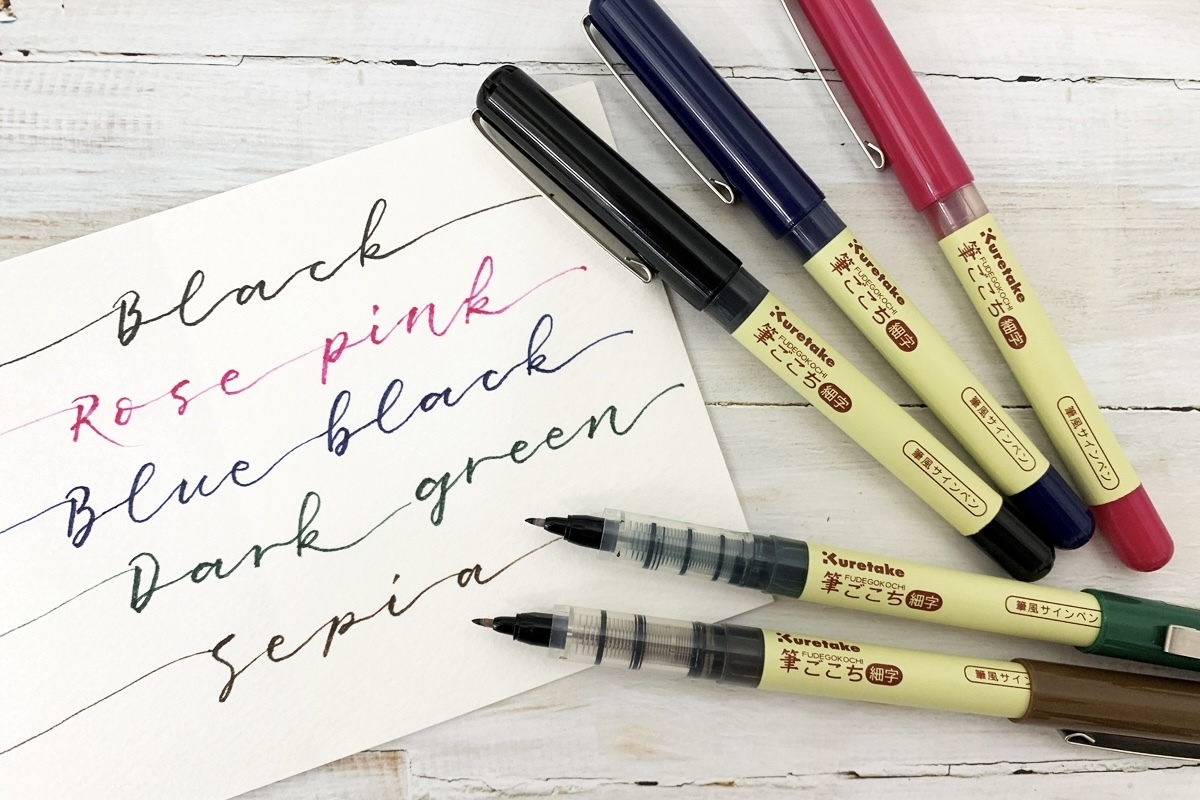 Black
Rose pink
Blue black
Dark green
Sepia
Kuretake
FUDEGOKOCHI
筆ごこち 細字
筆風サインペン
Kuretake
FUDEGOKOCHI
筆ごこち 細字
筆風サインペン
Kuretake
FUDEGOKOCHI
筆ごこち 細字
筆風サインペン
Kuretake
FUDEGOKOCHI
筆ごこち 細字
筆風サインペン
Kuretake
FUDEGOKOCHI
筆ごこち 細字
筆風サイン